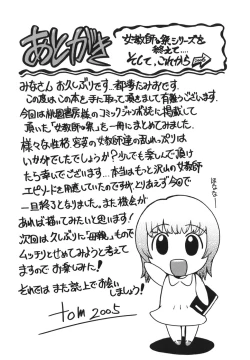 あとがき
女教師の祭シリーズを
終えて…
そして、これから
みなさん お久しぶりです。都夢たみずです。
この度は この本を手に取って頂きまして有難うございます。
今回は コミックジャンボ誌で掲載して
頂いた「女教師の祭」を一冊にまとめてみました。
様々な性格・容姿の女教師達の乱れっぷりは
いかがでしたでしょうか?少しでも楽しんで頂け
たら幸いでございます。本当はもっと沢山の女教師
エピソードを用意していたのですが とりあえず今回で
一旦終了となりました…。また機会が
あれば描いてみたいと思います!
次回は久しぶりに「母親」もので
ムッチリとせめてみようと考えて
ますので お楽しみに!
それでは また誌上でお会い
しましょう!
tom 2005